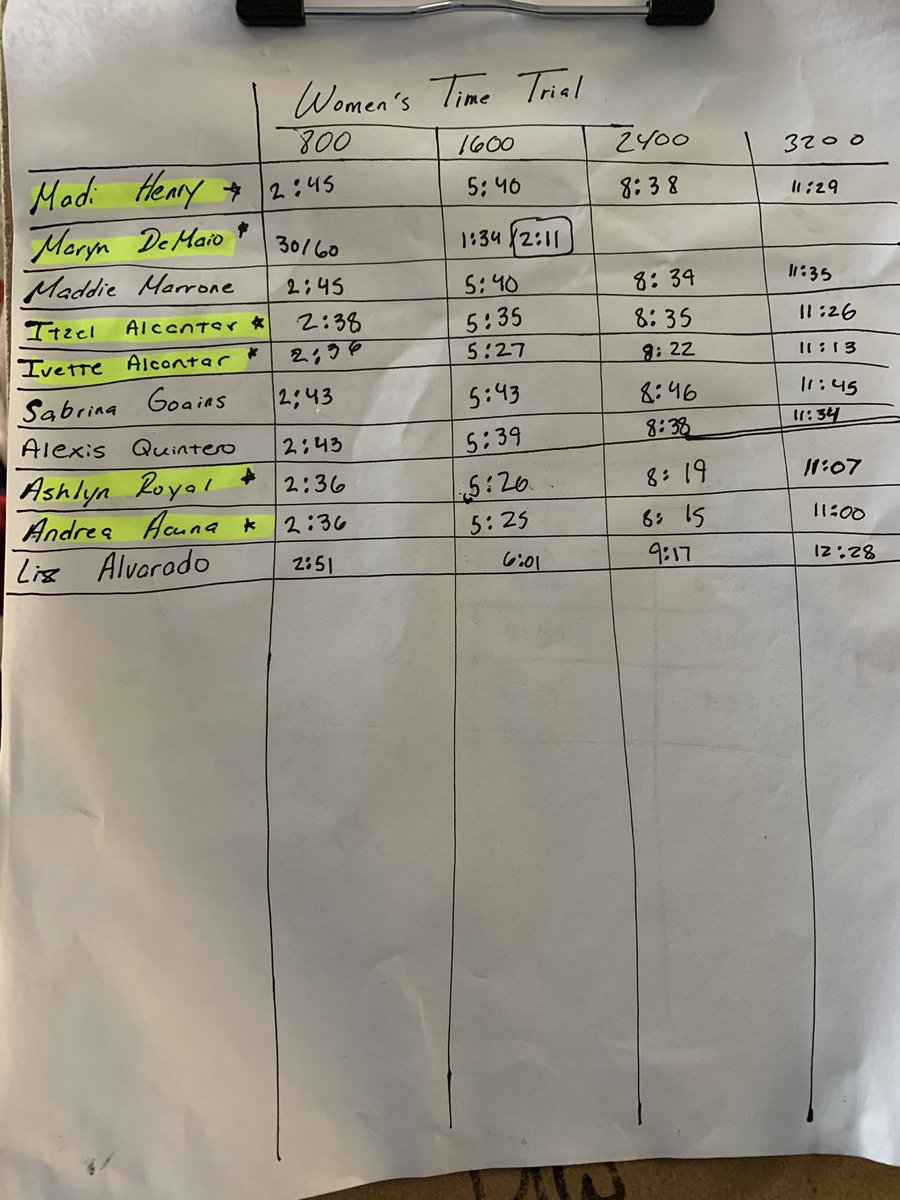 Women's Time Trial
800 1600 2400 3200
Madi Henry ☆ 2:45 5:40 8:38 11:29
Maryn DeMaio * 30/60 1:34/2:11
Maddie Marrone 2:45 5:40 8:39 11:35
Itzel Alcantar * 2:38 5:35 8:35 11:26
Ivette Alcantar * 2:36 5:27 8:22 11:13
Sabrina Goains 2:43 5:43 8:46 11:45
Alexis Quintero 2:43 5:39 8:38 11:34
Ashlyn Royal * 2:36 5:26 8:19 11:07
Andrea Acuna * 2:36 5:25 8:15 11:00
Liz Alvarado 2:51 6:01 9:17 12:28